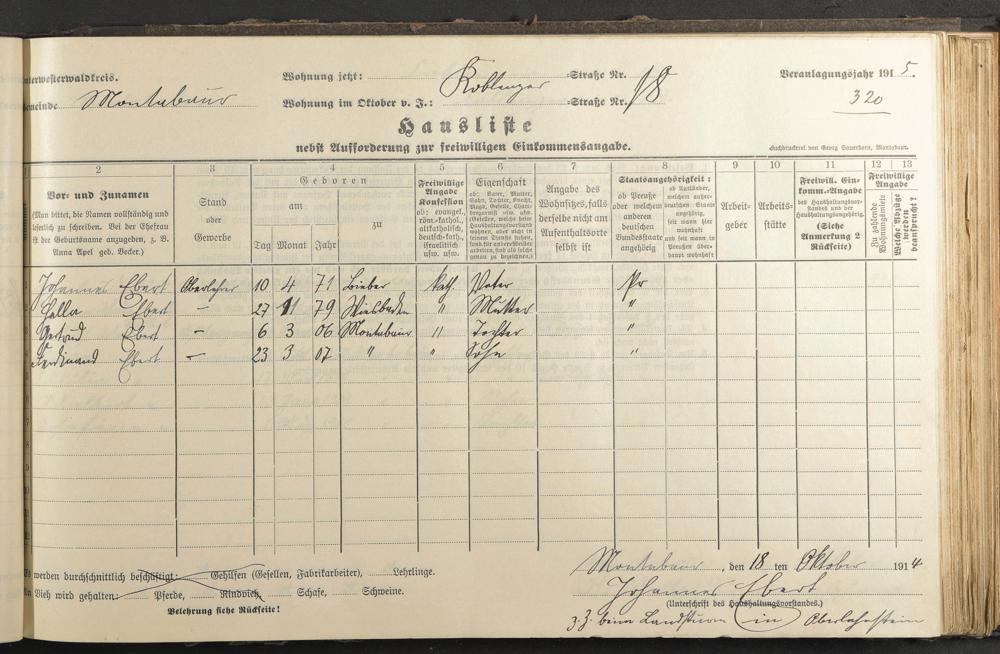 nterwesterwaldkreis. Wohnung jetzt: Koblenzer Straße Nr. 18 Veranlagungsjahr 1915.
emeinde Montabaur Wohnung im Oktober v. J.: Straße Nr.
320
Hausliste
nebst Aufforderung zur freiwilligen Einkommensangabe.
Buchdruckerei von Georg Sauerborn, Montabaur.
2 3 4 5 6 7 8 9 10 11 12 13
Vor- und Zunamen
(Man bittet, die Namen vollständig und
leserlich zu schreiben. Bei der Ehefrau
ist der Geburtsname anzugeben, z. B.
Anna Apel geb. Becker.)
Stand
oder
Gewerbe
Geboren
am
zu
Tag Monat Jahr
Freiwillige
Angabe
Konfession
ob: evangel.,
röm.-kathol.,
altkatholisch,
deutsch-kath.,
israelitisch
usw. usw.
Eigenschaft
ob: Vater, Mutter,
Sohn, Tochter, Knecht,
Magd, Geselle,
Angabe des
Wohnsitzes, falls
derselbe nicht am
Aufenthaltsorte
selbst ist
Staatsangehörigkeit:
ob Preuße
oder welchem
anderen
deutschen
Bundesstaate
angehörig
ob Ausländer,
welchem außer-
deutschen Staate
angehörig,
seit wann hier
wohnhaft
und seit wann in
Preußen über-
haupt wohnhaft
Arbeit-
geber
Arbeits-
stätte
Freiwill. Ein-
komm.-Angabe
des Haushaltungsvor-
standes und der
Haushaltungsangehörig.
(Siehe
Anmerkung 2
Rückseite)
Freiwillige
Angabe
Zu zahlende
Wohnungsmiete
Welche Abzüge
werden
beansprucht?
Johannes Ebert Oberlehrer 10 4 71 Bieber kath. Vater Pr
Hella Ebert – 27 11 79 Wiesbaden " Mutter "
Gertrud Ebert – 6 3 06 Montabaur " Tochter "
Ferdinand Ebert – 23 3 07 " " Sohn "
werden durchschnittlich beschäftigt: Gehilfen (Gesellen, Fabrikarbeiter), Lehrlinge.
n Vieh wird gehalten: Pferde, Rindvieh, Schafe, Schweine.
Belehrung siehe Rückseite!
Montabaur, den 18 ten Oktober 1914
Johannes Ebert
(Unterschrift des Haushaltungsvorstandes.)
z. Z. beim Landsturm in Oberlahnstein